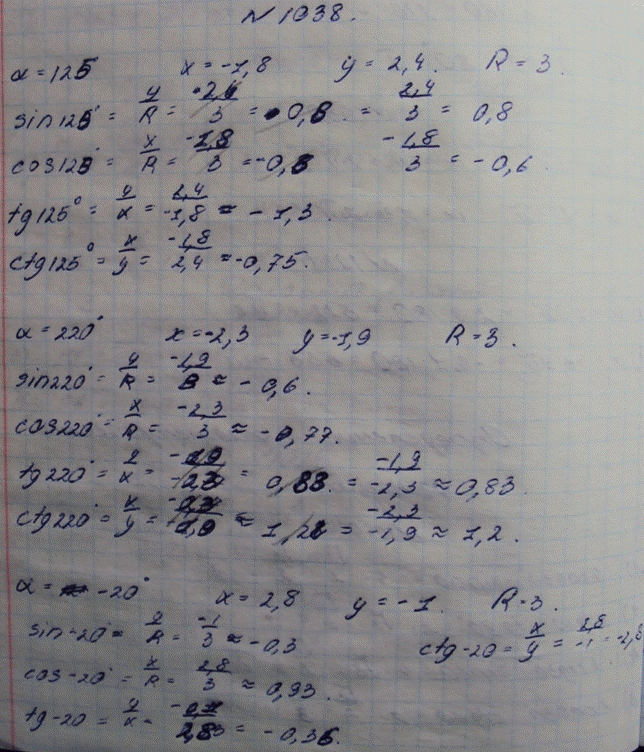 N 1038.
α = 125° x = -1,8 y = 2,4. R = 3.
sin 125° = y/R = 2,4/3 = 0,8. = 2,4/3 = 0,8
cos 125° = x/R = -1,8/3 = -0,6 -1,8/3 = -0,6.
tg 125° = y/x = 2,4/-1,8 ≈ -1,3.
ctg 125° = x/y = -1,8/2,4 ≈ -0,75.
α = 220° x = -2,3 y = -1,9 R = 3.
sin 220° = y/R = -1,9/3 ≈ -0,6.
cos 220° = x/R = -2,3/3 ≈ -0,77.
tg 220° = y/x = = 0,83. = -1,9/-2,3 ≈ 0,83.
ctg 220° = x/y = ≈ = -2,3/-1,9 ≈ 1,2.
α = -20° x = 2,8 y = -1 R = 3.
sin -20° = y/R = -1/3 ≈ -0,3
ctg -20 = x/y = 2,8/-1 = -2,8
cos -20° = x/R = 2,8/3 ≈ 0,93.
tg -20 = y/x = = -0,36.